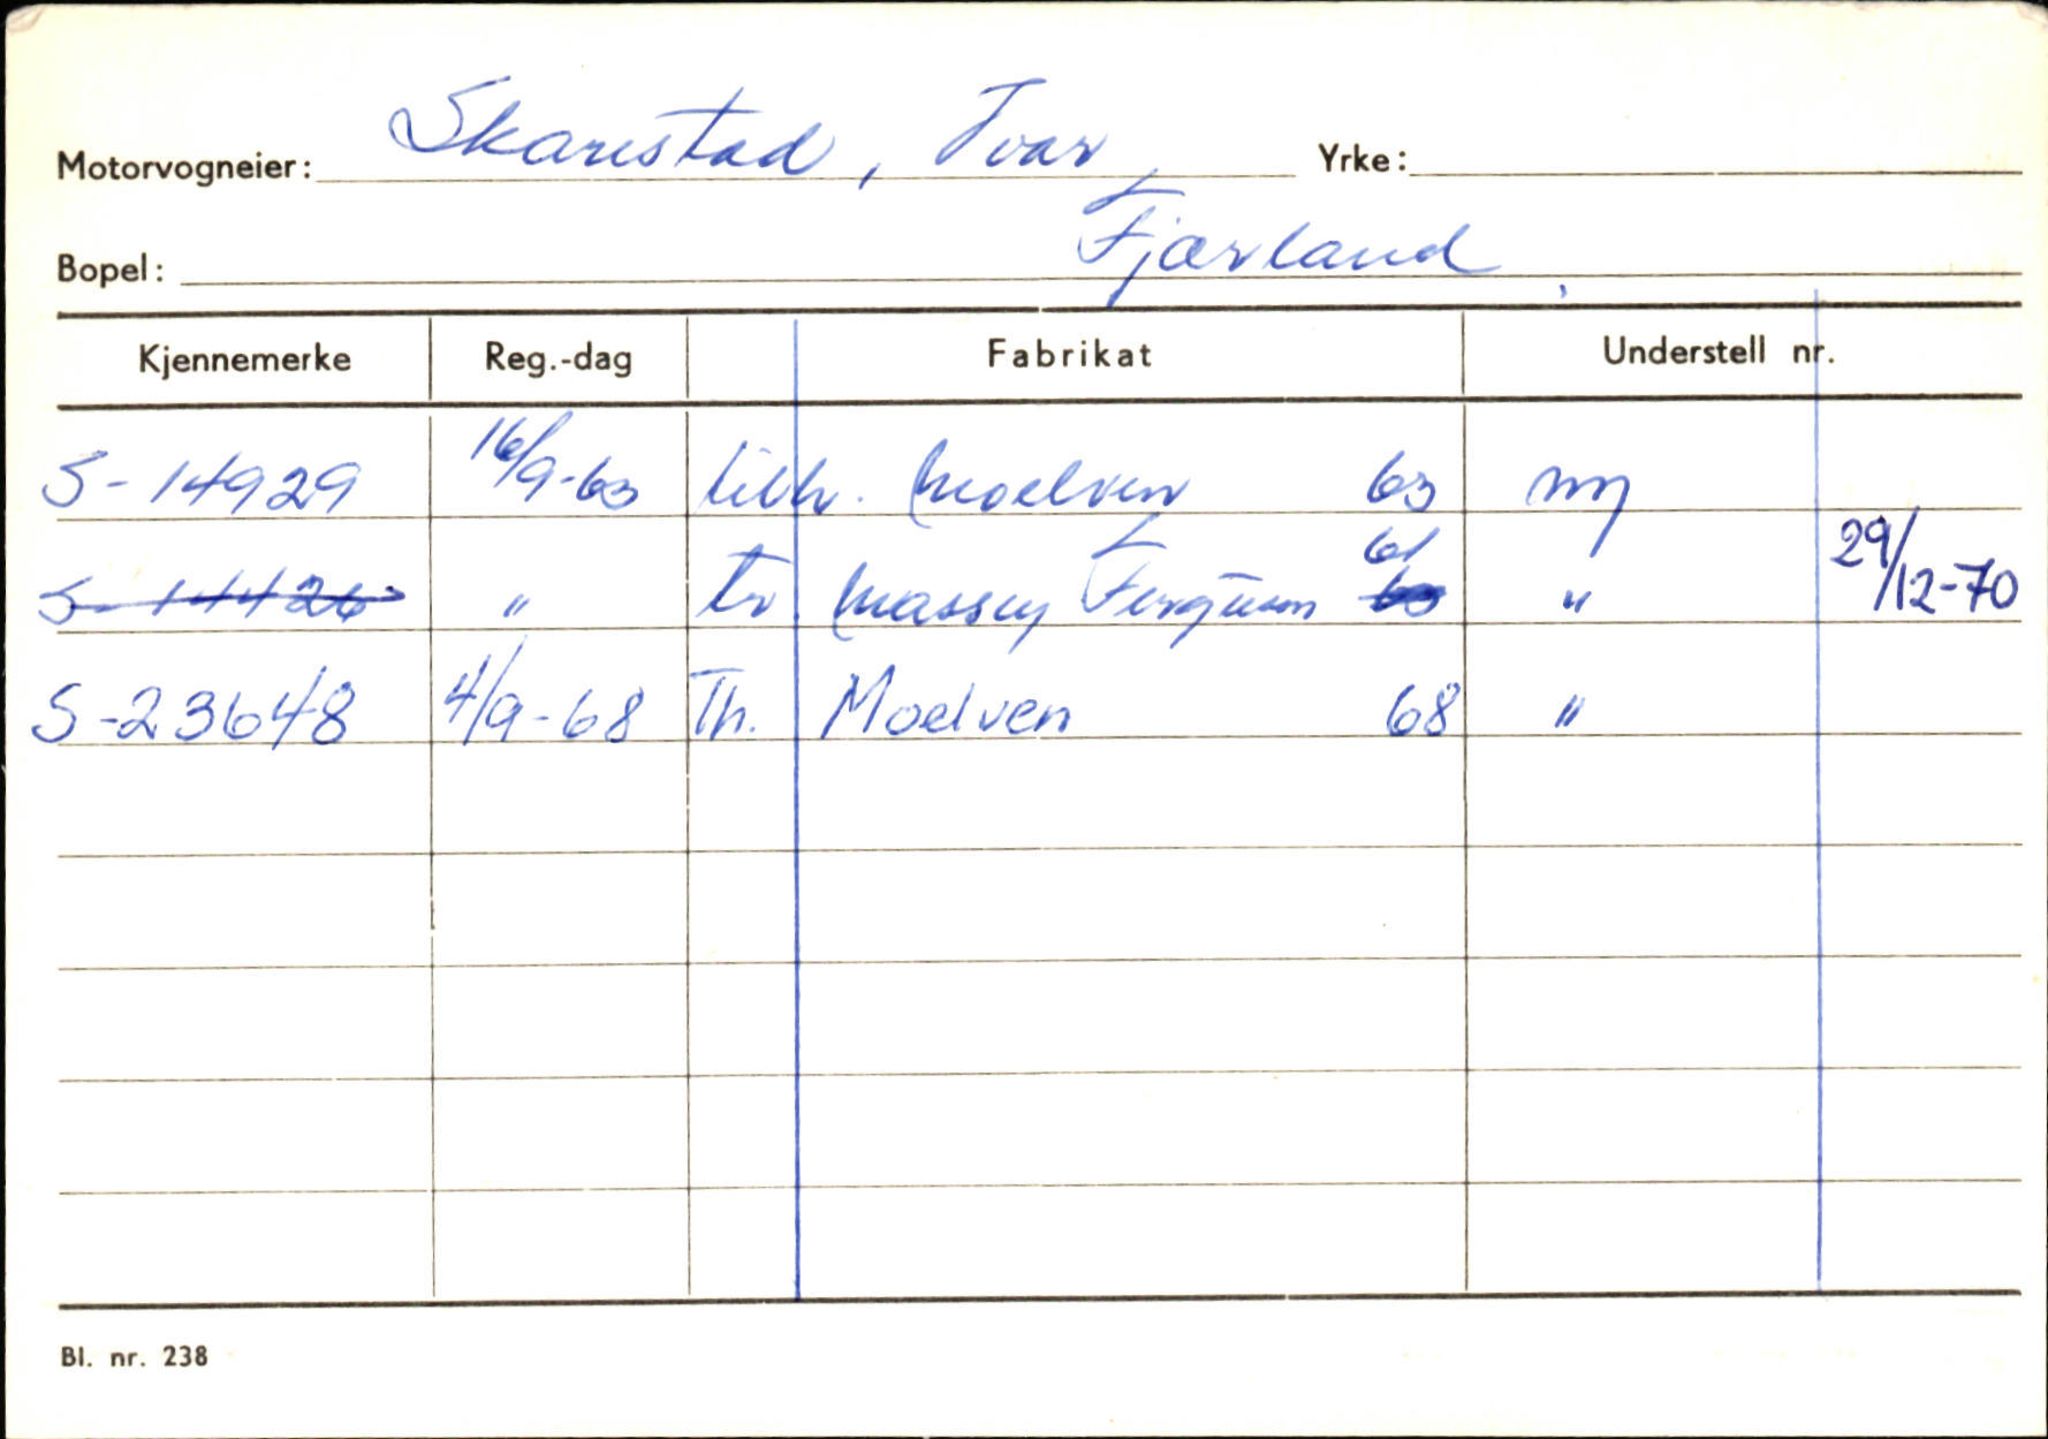 Motorvogneier: Skarestad, Ivar, Yrke:
Bopel: Fjærland
Kjennemerke Reg.-dag Fabrikat Understell nr.
S-14929 16/9-63 tilh. Moelven 63 ny
S-14426 " tr. Massey Ferguson 61 63 " 29/12-70
S-23648 4/9-68 Th. Moelven 68 "
Bl. nr. 238